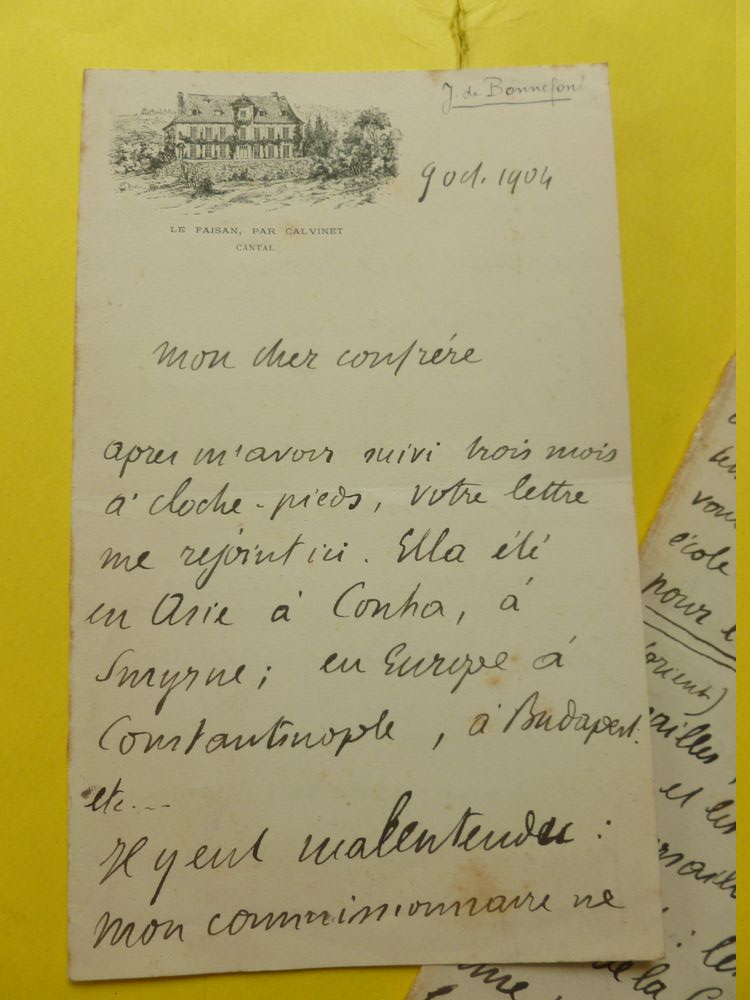 J. de Bonnefon
9 oct. 1904
LE FAISAN, PAR CALVINET
CANTAL
mon cher confrére
apres m'avoir suivi trois mois
à cloche-pieds, votre lettre
me rejoint ici. Ella été
en Asie à Conha, à
Smyrne; en Europe à
Constantinople, à Budapest.
etc...
Il y eut malentendu :
mon commissionnaire ne
vou
école
pour
(orient)
ailles,
et les
: les
de la